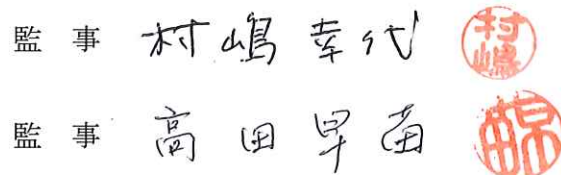 監 事 村嶋 幸代 村嶋
監 事 高田 早苗